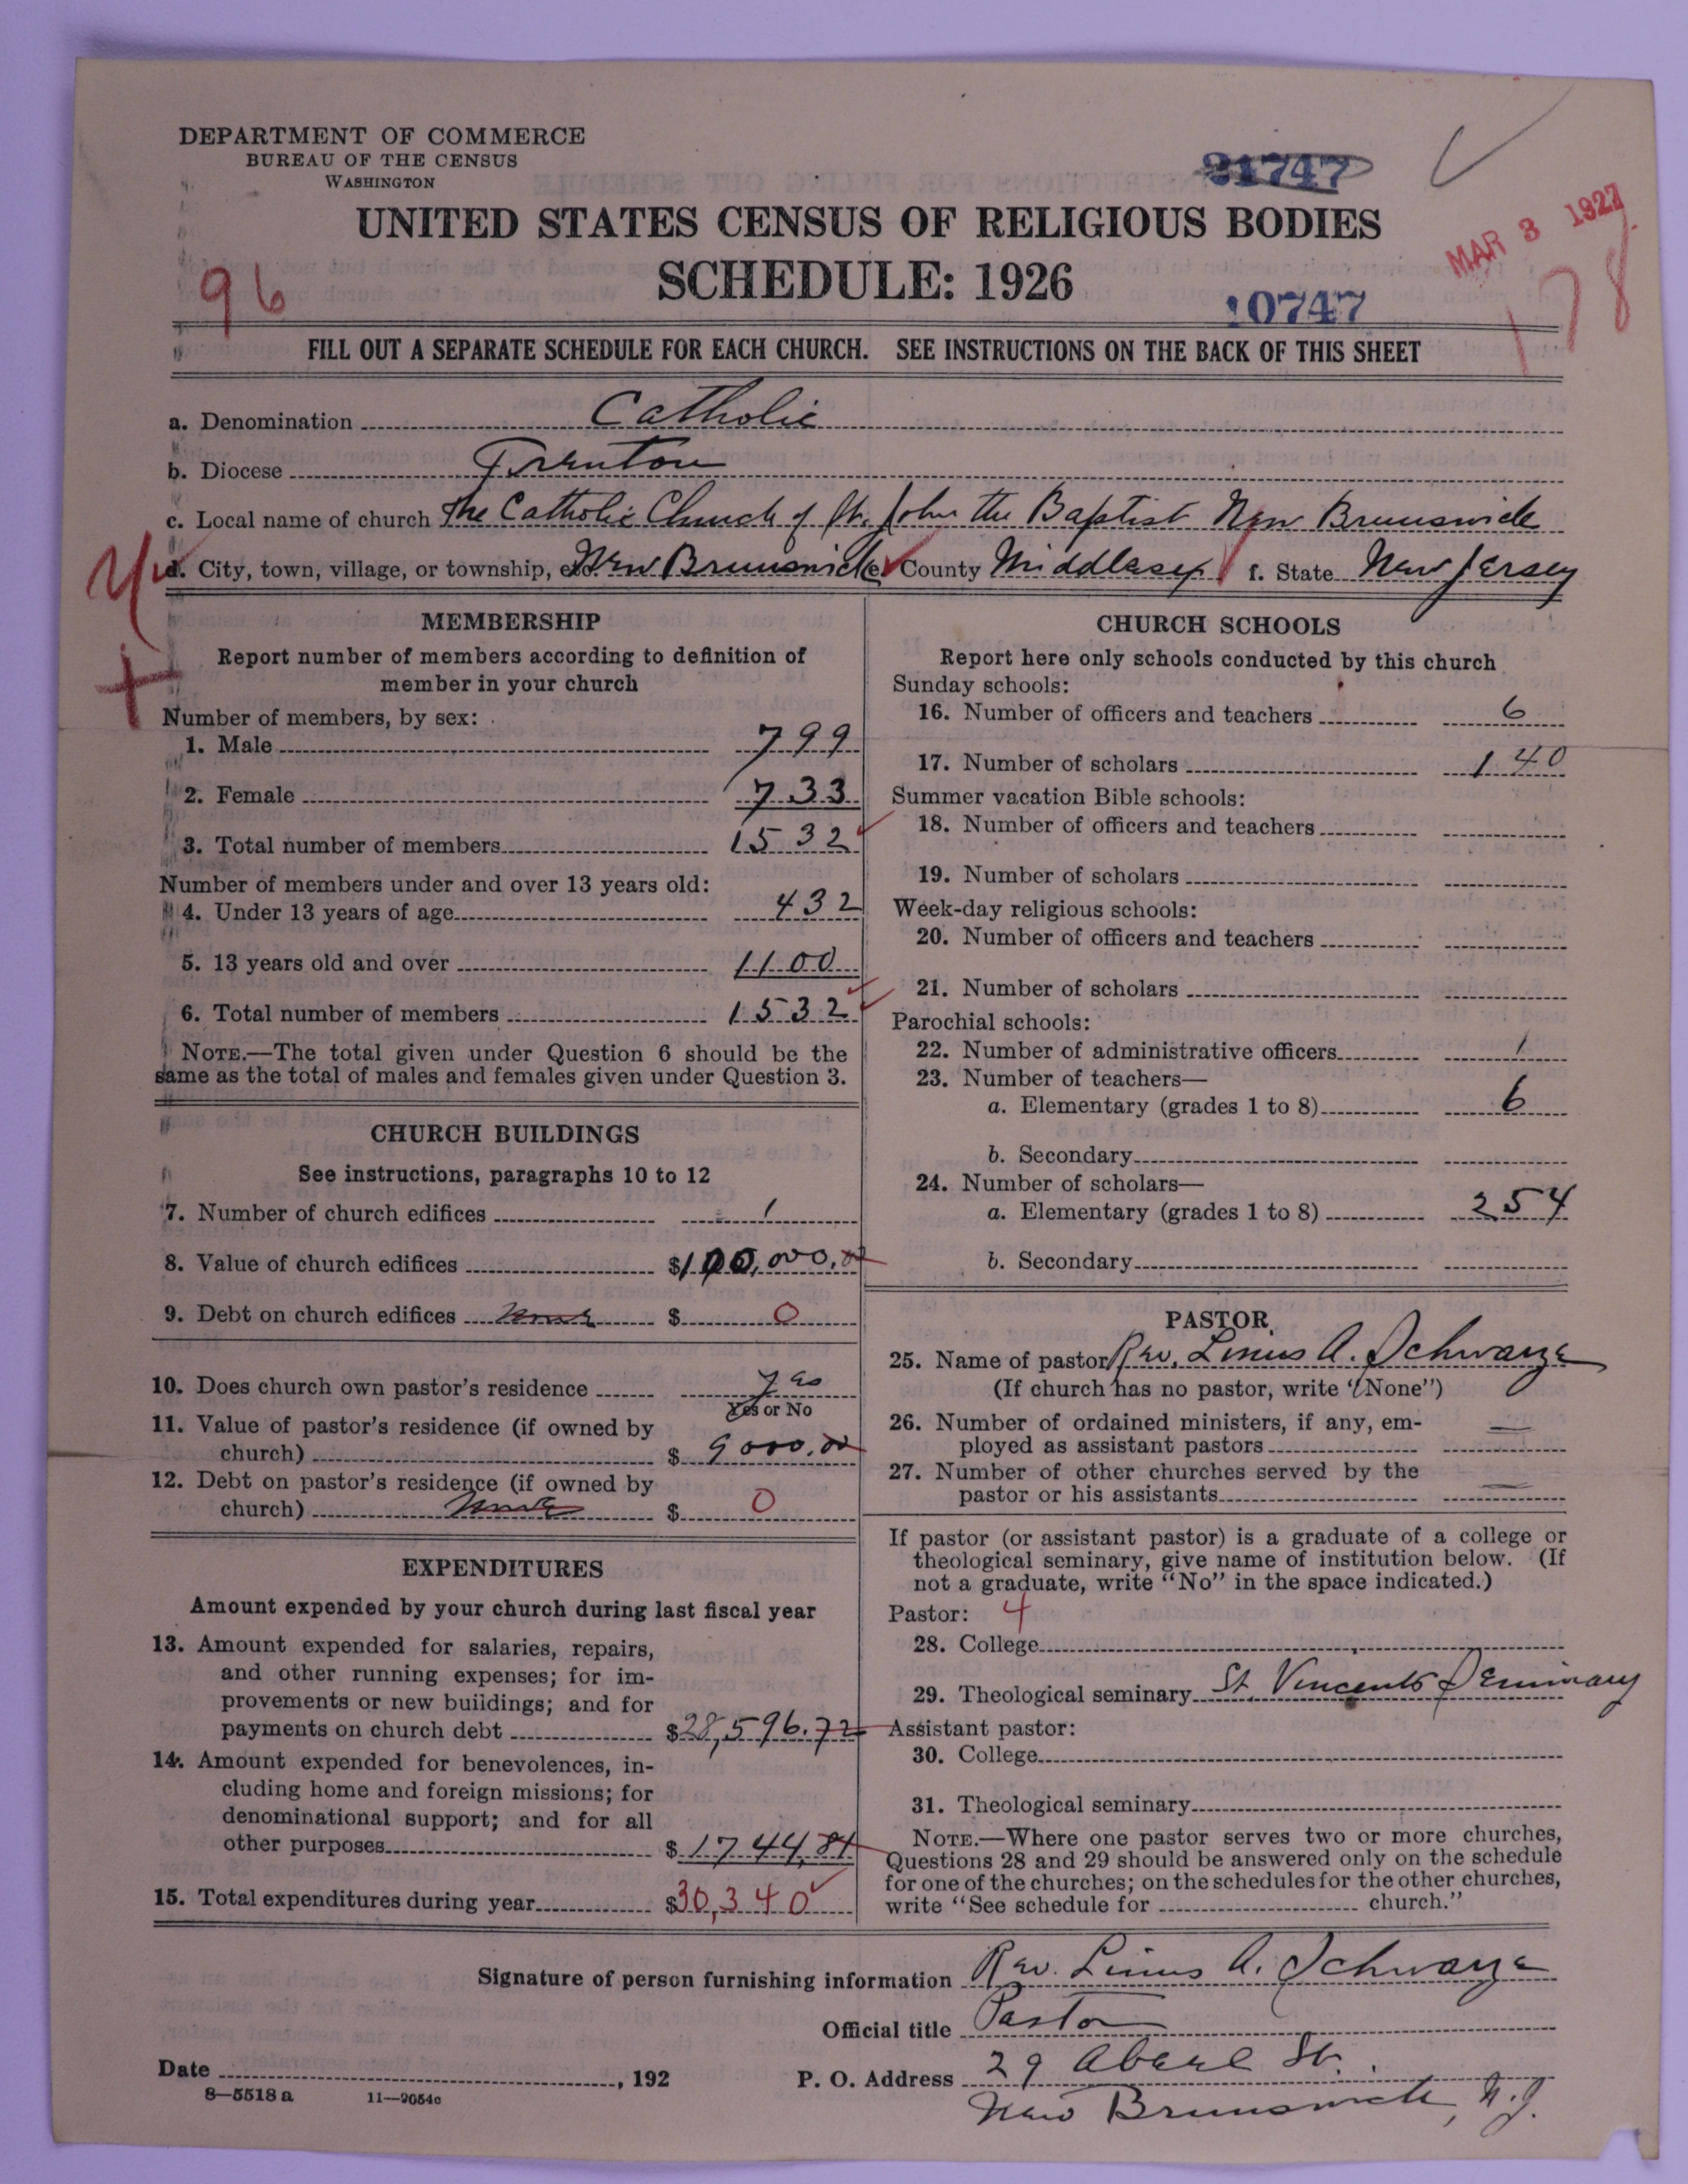 DEPARTMENT OF COMMERCE
BUREAU OF THE CENSUS
WASHINGTON
31747
UNITED STATES CENSUS OF RELIGIOUS BODIES
MAR 3 1927
SCHEDULE: 1926
96
10747
178
FILL OUT A SEPARATE SCHEDULE FOR EACH CHURCH. SEE INSTRUCTIONS ON THE BACK OF THIS SHEET
a. Denomination Catholic
b. Diocese Trenton
c. Local name of church The Catholic Church of St. John the Baptist New Brunswick
d. City, town, village, or township, etc. New Brunswick e. County Middlesex f. State New Jersey
MEMBERSHIP
Report number of members according to definition of
member in your church
Number of members, by sex:
1. Male 799
2. Female 733
3. Total number of members 1532
Number of members under and over 13 years old:
4. Under 13 years of age 432
5. 13 years old and over 1100
6. Total number of members 1532
NOTE.—The total given under Question 6 should be the
same as the total of males and females given under Question 3.
CHURCH BUILDINGS
See instructions, paragraphs 10 to 12
7. Number of church edifices 1
8. Value of church edifices $100,000.00
9. Debt on church edifices none $ 0
10. Does church own pastor's residence yes
Yes or No
11. Value of pastor's residence (if owned by
church) $ 9000.00
12. Debt on pastor's residence (if owned by
church) none $ 0
EXPENDITURES
Amount expended by your church during last fiscal year
13. Amount expended for salaries, repairs,
and other running expenses; for im-
provements or new buildings; and for
payments on church debt $28,596.72
14. Amount expended for benevolences, in-
cluding home and foreign missions; for
denominational support; and for all
other purposes $1744.81
15. Total expenditures during year $30,340
CHURCH SCHOOLS
Report here only schools conducted by this church
Sunday schools:
16. Number of officers and teachers 6
17. Number of scholars 140
Summer vacation Bible schools:
18. Number of officers and teachers
19. Number of scholars
Week-day religious schools:
20. Number of officers and teachers
21. Number of scholars
Parochial schools:
22. Number of administrative officers 1
23. Number of teachers—
a. Elementary (grades 1 to 8) 6
b. Secondary
24. Number of scholars—
a. Elementary (grades 1 to 8) 254
b. Secondary
PASTOR
25. Name of pastor Rev. Linus A. Schwarze
(If church has no pastor, write "None")
26. Number of ordained ministers, if any, em-
ployed as assistant pastors —
27. Number of other churches served by the
pastor or his assistants —
If pastor (or assistant pastor) is a graduate of a college or
theological seminary, give name of institution below. (If
not a graduate, write "No" in the space indicated.)
Pastor: 4
28. College
29. Theological seminary St. Vincents Seminary
Assistant pastor:
30. College
31. Theological seminary
NOTE.—Where one pastor serves two or more churches,
Questions 28 and 29 should be answered only on the schedule
for one of the churches; on the schedules for the other churches,
write "See schedule for church."
Signature of person furnishing information Rev. Linus A. Schwarze
Official title Pastor
Date , 192
P. O. Address 29 Abeel St.
New Brunswick, N.J.
8—5518 a 11—9054c